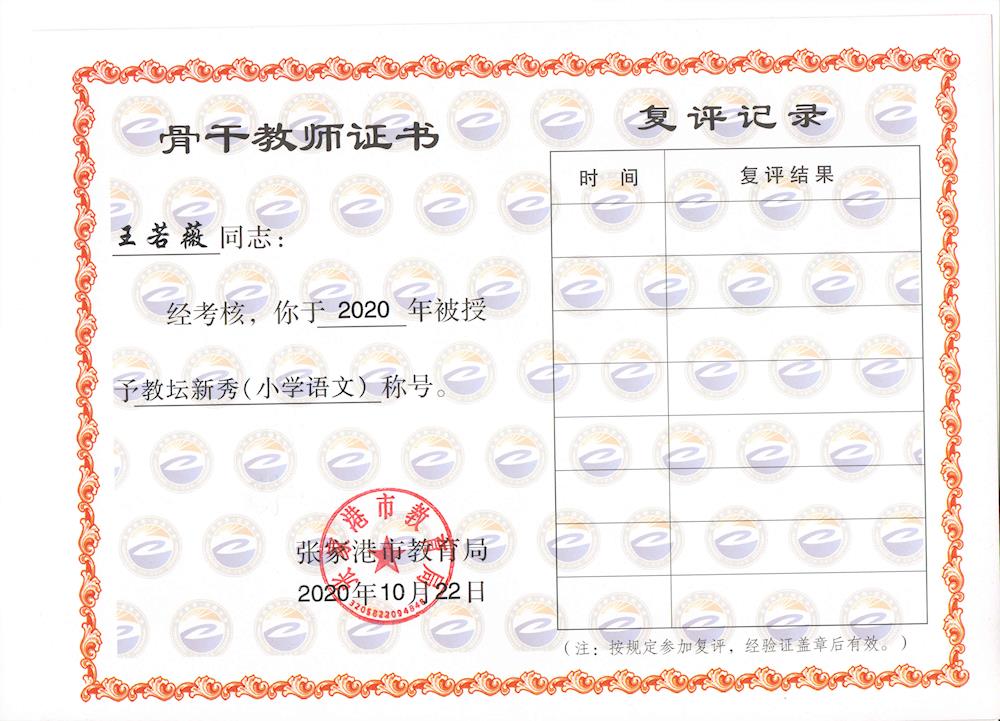 骨干教师证书
王若薇同志：
经考核，你于 2020 年被授
予教坛新秀（小学语文）称号。
张家港市教育局
张家港市教育局
2020年10月22日
复评记录
时 间 复评结果
（注：按规定参加复评，经验证盖章后有效。）